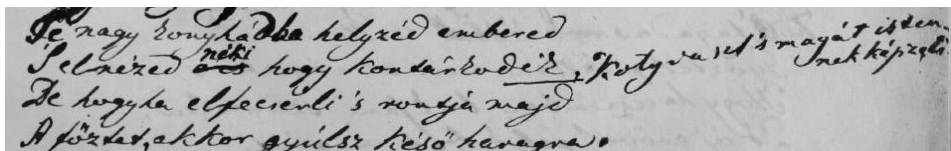 Te nagy konyhádba helyzéd embered
S elnézed néki hogy kontárkodik, Kotyvaszt 's magát isten
nek képzeli
De hogyha elfecsérli 's rontja majd
A főztet, akkor gyúlsz késő haragra.